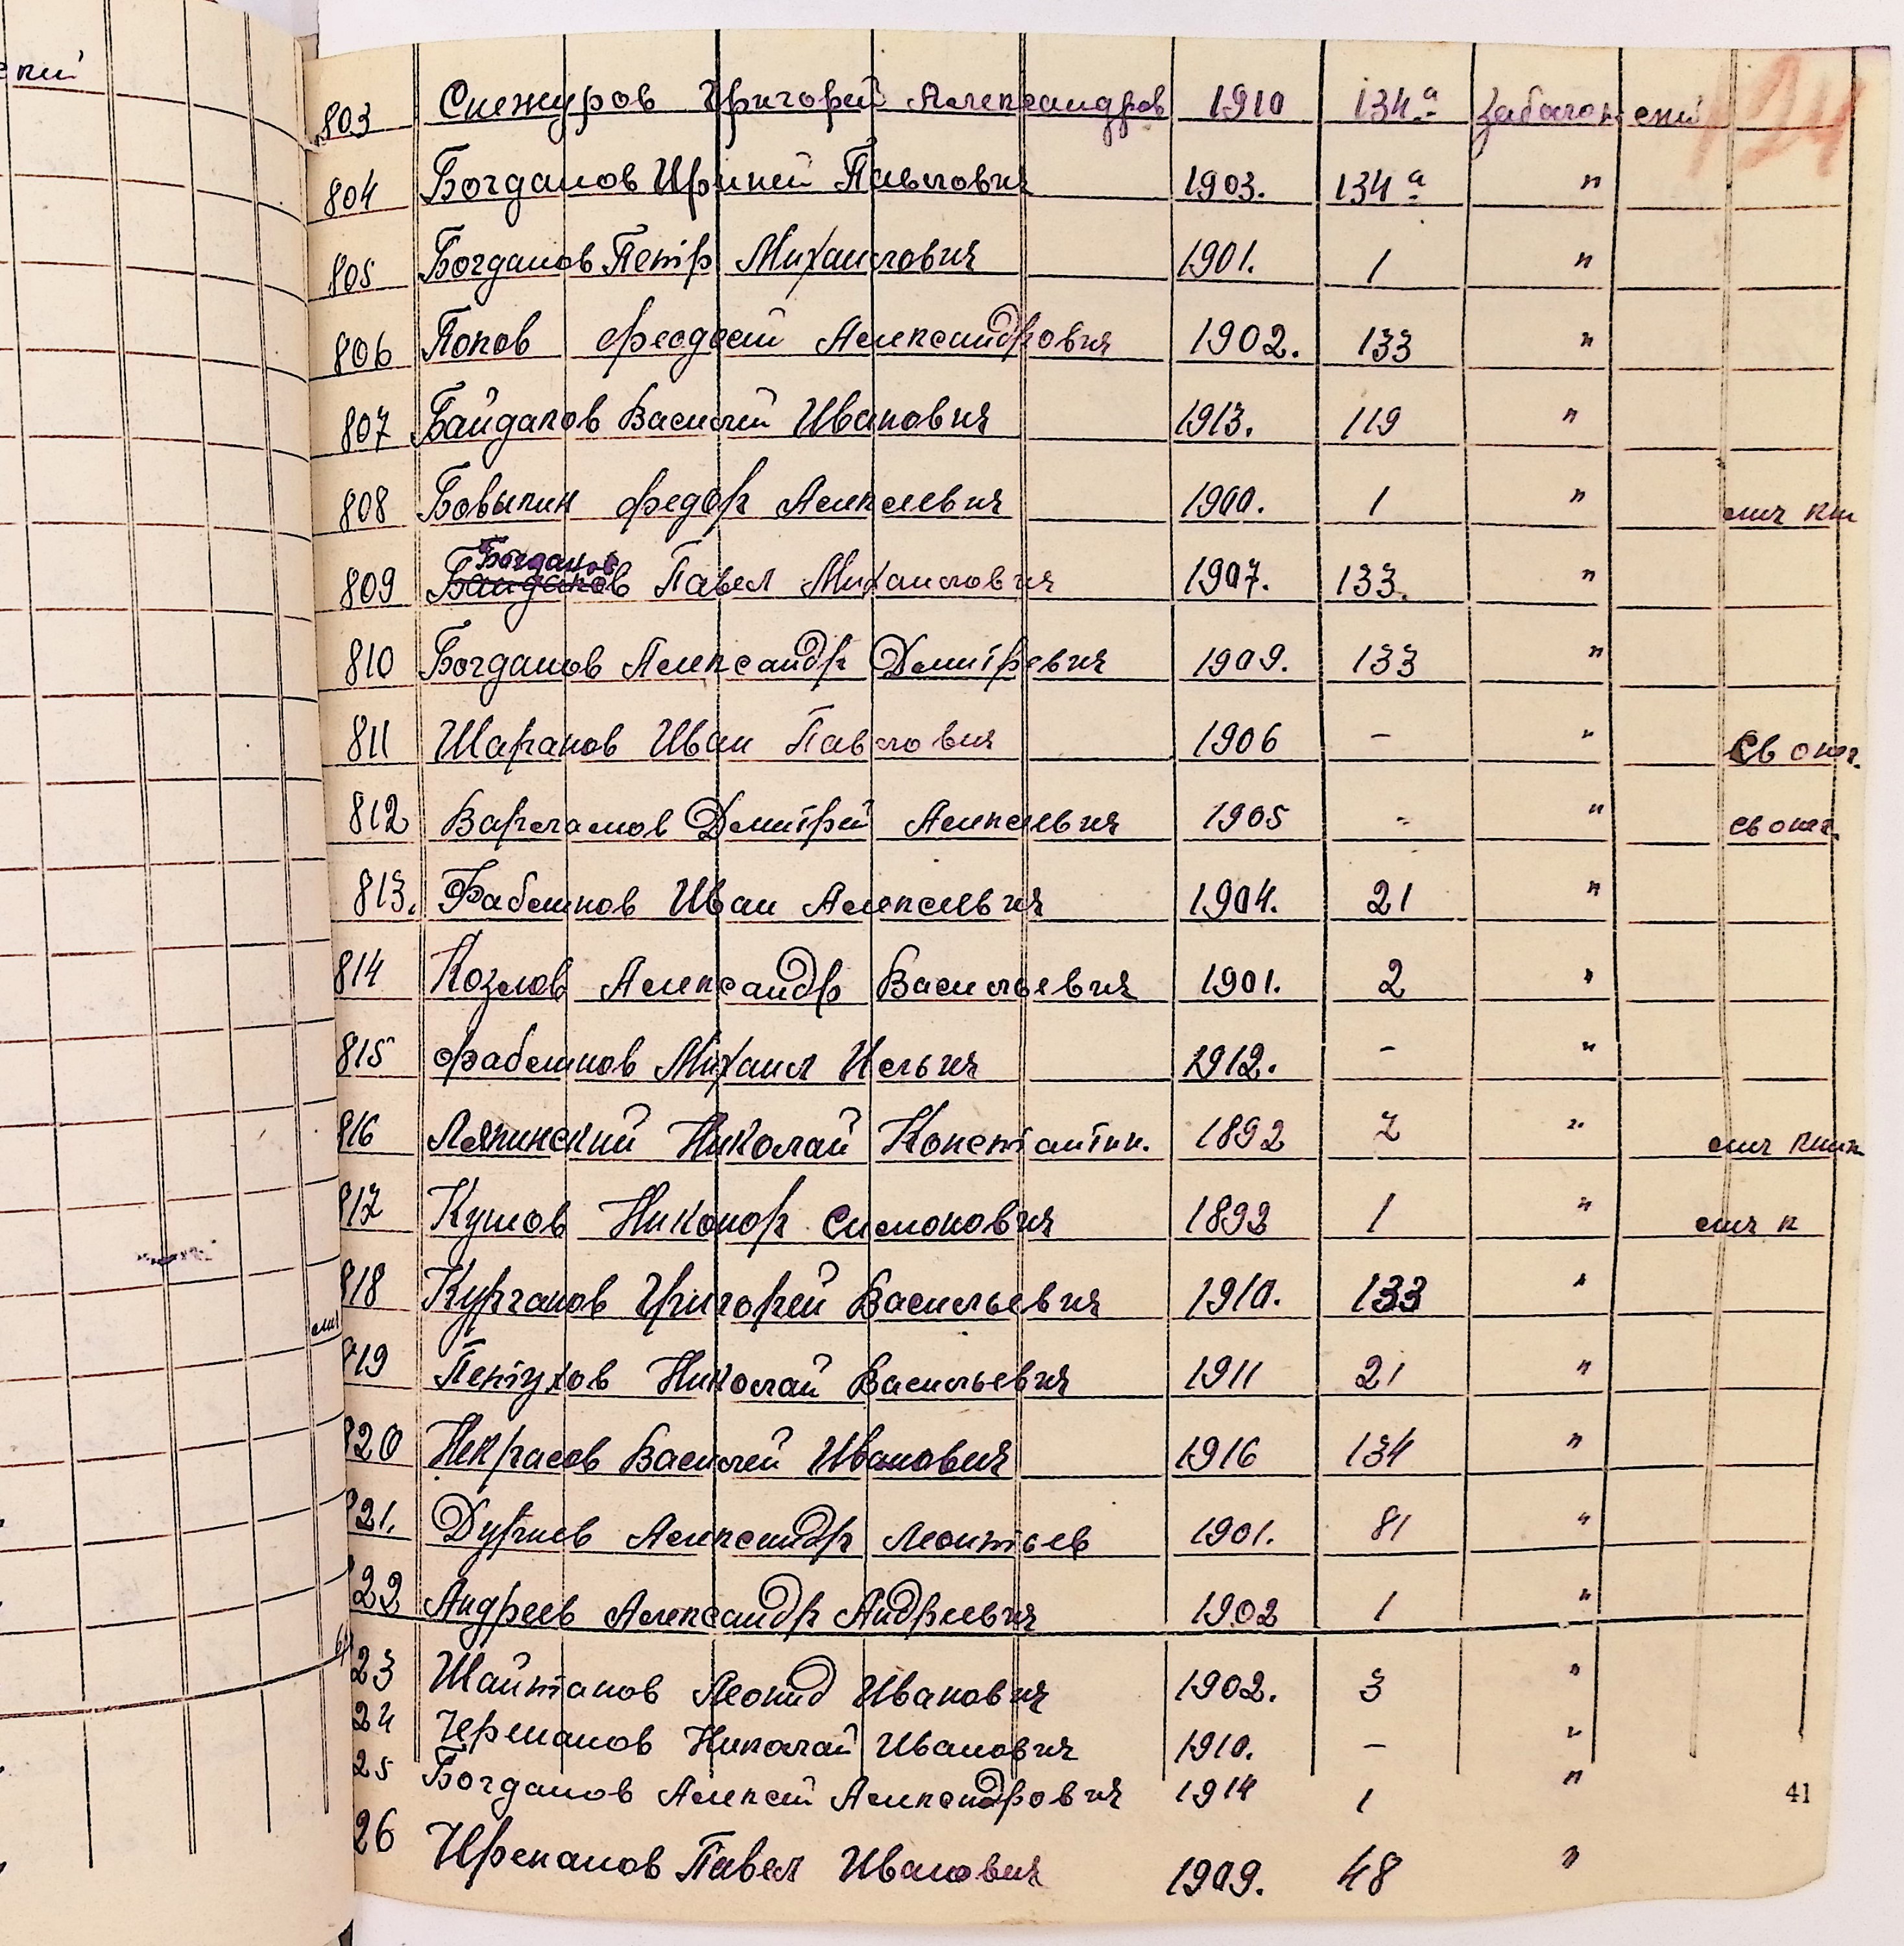 124
803 Снежуров Григорий Александров 1910 134а
804 Богданов Ириней Павлович 1903. 134а "
805 Богданов Петр Михайлович 1901. 1 "
806 Попов Феодосий Александрович 1902. 133 "
807 Байдаков Василий Иванович 1913. 119 "
808 Бовыкин Федор Алексеевич 1900. 1 "
Богданов
809 Павел Михайлович 1907. 133. "
810 Богданов Александр Дмитревич 1909. 133 "
811 Шарапов Иван Павлович 1906 - "
812 Варламов Дмитрий Алексеевич 1905 - "
813. Фабешков Иван Алексеевич 1904. 21 "
814 Козлов Александр Васильевич 1901. 2 "
815 Фабешков Михаил Ильич 1912. - "
816 Ляпинский Николай Константин. 1892 2 "
817 Никонор Симонович 1892 1 "
818 Курганов Григорий Васильевич 1910. 133 "
819 Петухов Николай Васильевич 1911 21 "
820 Некрасов Василий Иванович 1916 134 "
821. Александр Леонтьев 1901. 81 "
22 Андреев Александр Андреевич 1902 1 "
23 Шайтанов Леонид Иванович 1902. 3 "
24 Черепанов Николай Иванович 1910. - "
25 Богданов Алексей Александрович 1914 1 "
41
26 Павел Иванович 1909. 48 "